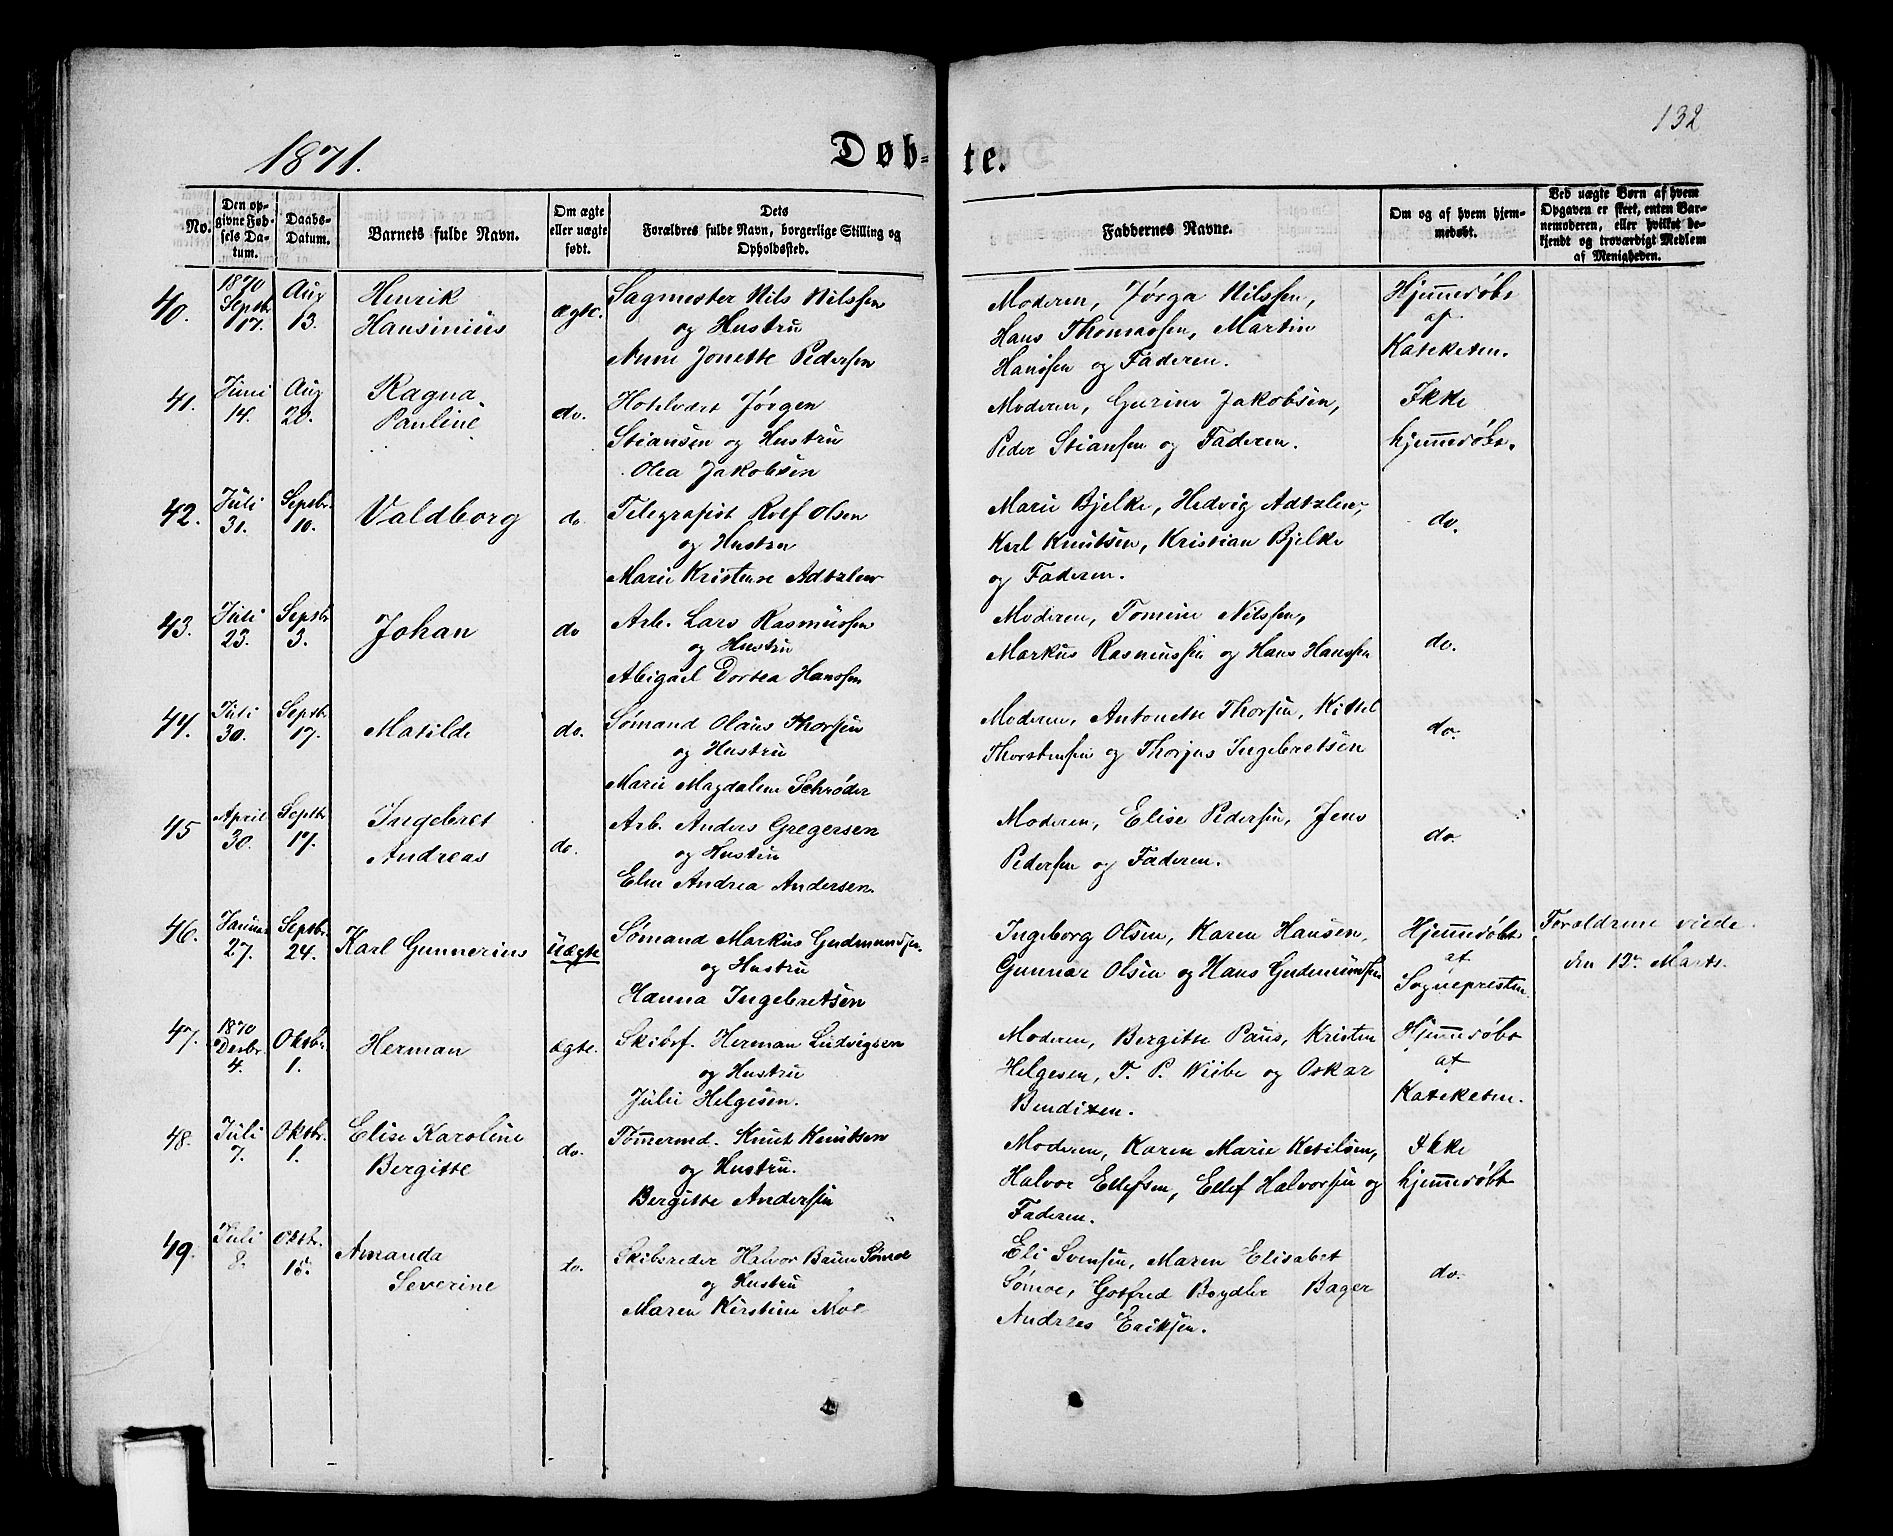 132
1871.
Døb-te.
No.
Den op-
givne Fød-
sels Da-
tum.
Daabs-
Datum.
Barnets fulde Navn.
Om ægte
eller uægte
født.
Dets
Forældres fulde Navn, borgerlige Stilling og
Opholdssted.
Faddernes Navne.
Om og af hvem hjem-
medøbt.
Ved uægte Børn af hvem
Opgaven er skeet, enten Bar-
nemoderen, eller hvilket be-
kjendt og troværdigt Medlem
af Menigheden.
40.
1870
Septbr
17.
Aug
13.
Henrik
Hansinius
ægte.
Sagmester Nils Nilssen
og Hustru
Anne Jonette Pedersen
Moderen, Jørga Nilssen,
Hans Thomassen, Martin
Hansen og Faderen.
Hjemmedøbt
af
Kateketen.
41.
Juni
14.
Aug
20.
Ragna
Pauline
do.
Hotelvært Jørgen
Stiansen og Hustru
Olea Jakobsen
Moderen, Gurine Jakobsen,
Peder Stiansen og Faderen.
Ikke
hjemmedøbt.
42.
Juli
31.
Septbr.
10.
Valdborg
do.
Telegrafist Rolf Olsen
og Hustru
Marie Kristense
Marie Bjelke, Hedvig
Karl Knutsen, Kristian Bjelke
og Faderen.
do.
43.
Juli
23.
Septbr
3.
Johan
do
Arb. Lars Rasmussen
og Hustru
Abigael Dortea Hanssen
Moderen, Tomine Nilssen,
Markus Rasmussen og Hans Hanssen
do.
44.
Juli
30.
Septbr
17.
Matilde
do.
Sømand Olaus Thorsen
og Hustru
Marie Magdalene Schrøder
Moderen, Antonette Thorsen, Kittel
Thorstensen og Thorjus Ingebretsen
do.
45
April
30.
Septbr
17.
Ingebret
Andreas
do.
Arb. Anders Gregersen
og Hustru
Elen Andrea Andersen.
Moderen, Elise Pedersen, Jens
Pedersen og Faderen.
do.
46.
Januar
27.
Septbr.
24.
Karl Gunnerius
Uægte
Sømand Markus Gudmundsen
og Hustru
Hanna Ingebretsen
Ingeborg Olsen, Karen Hansen,
Gunnar Olsen og Hans Gudmundsen
Hjemmedøbt
af
Sognepresten.
Forældrene viede
den 12te Marts.
47.
1870
Decbr.
4.
Oktbr.
1.
Herman
ægte.
Skibsf. Herman Ludvigsen
og Hustru
Julie Helgesen.
Moderen, Bergitte Paus, Kristen
Helgesen, T. P. Wiibe og Oskar
Bendixen.
Hjemmedøbt
af
Kateketen.
48.
Juli
7.
Oktbr.
1.
Elise Karoline
Bergitte
do.
Tømmermd. Knut Knutsen
og Hustru.
Bergitte Andersen
Moderen, Karen Marie Ketilsen,
Halvor Ellefsen, Ellef Halvorsen og
Faderen.
Ikke
hjemmedøbt
49.
Juli
8.
Oktbr.
15.
Amanda
Severine
do.
Skibsreder Halvor Bauer Sømoe
og Hustru
Maren Kirstine Moe
Eli Svensen, Maren Elisabet
Sømoe, Gotfred Bager
Andreas Eriksen.
do.